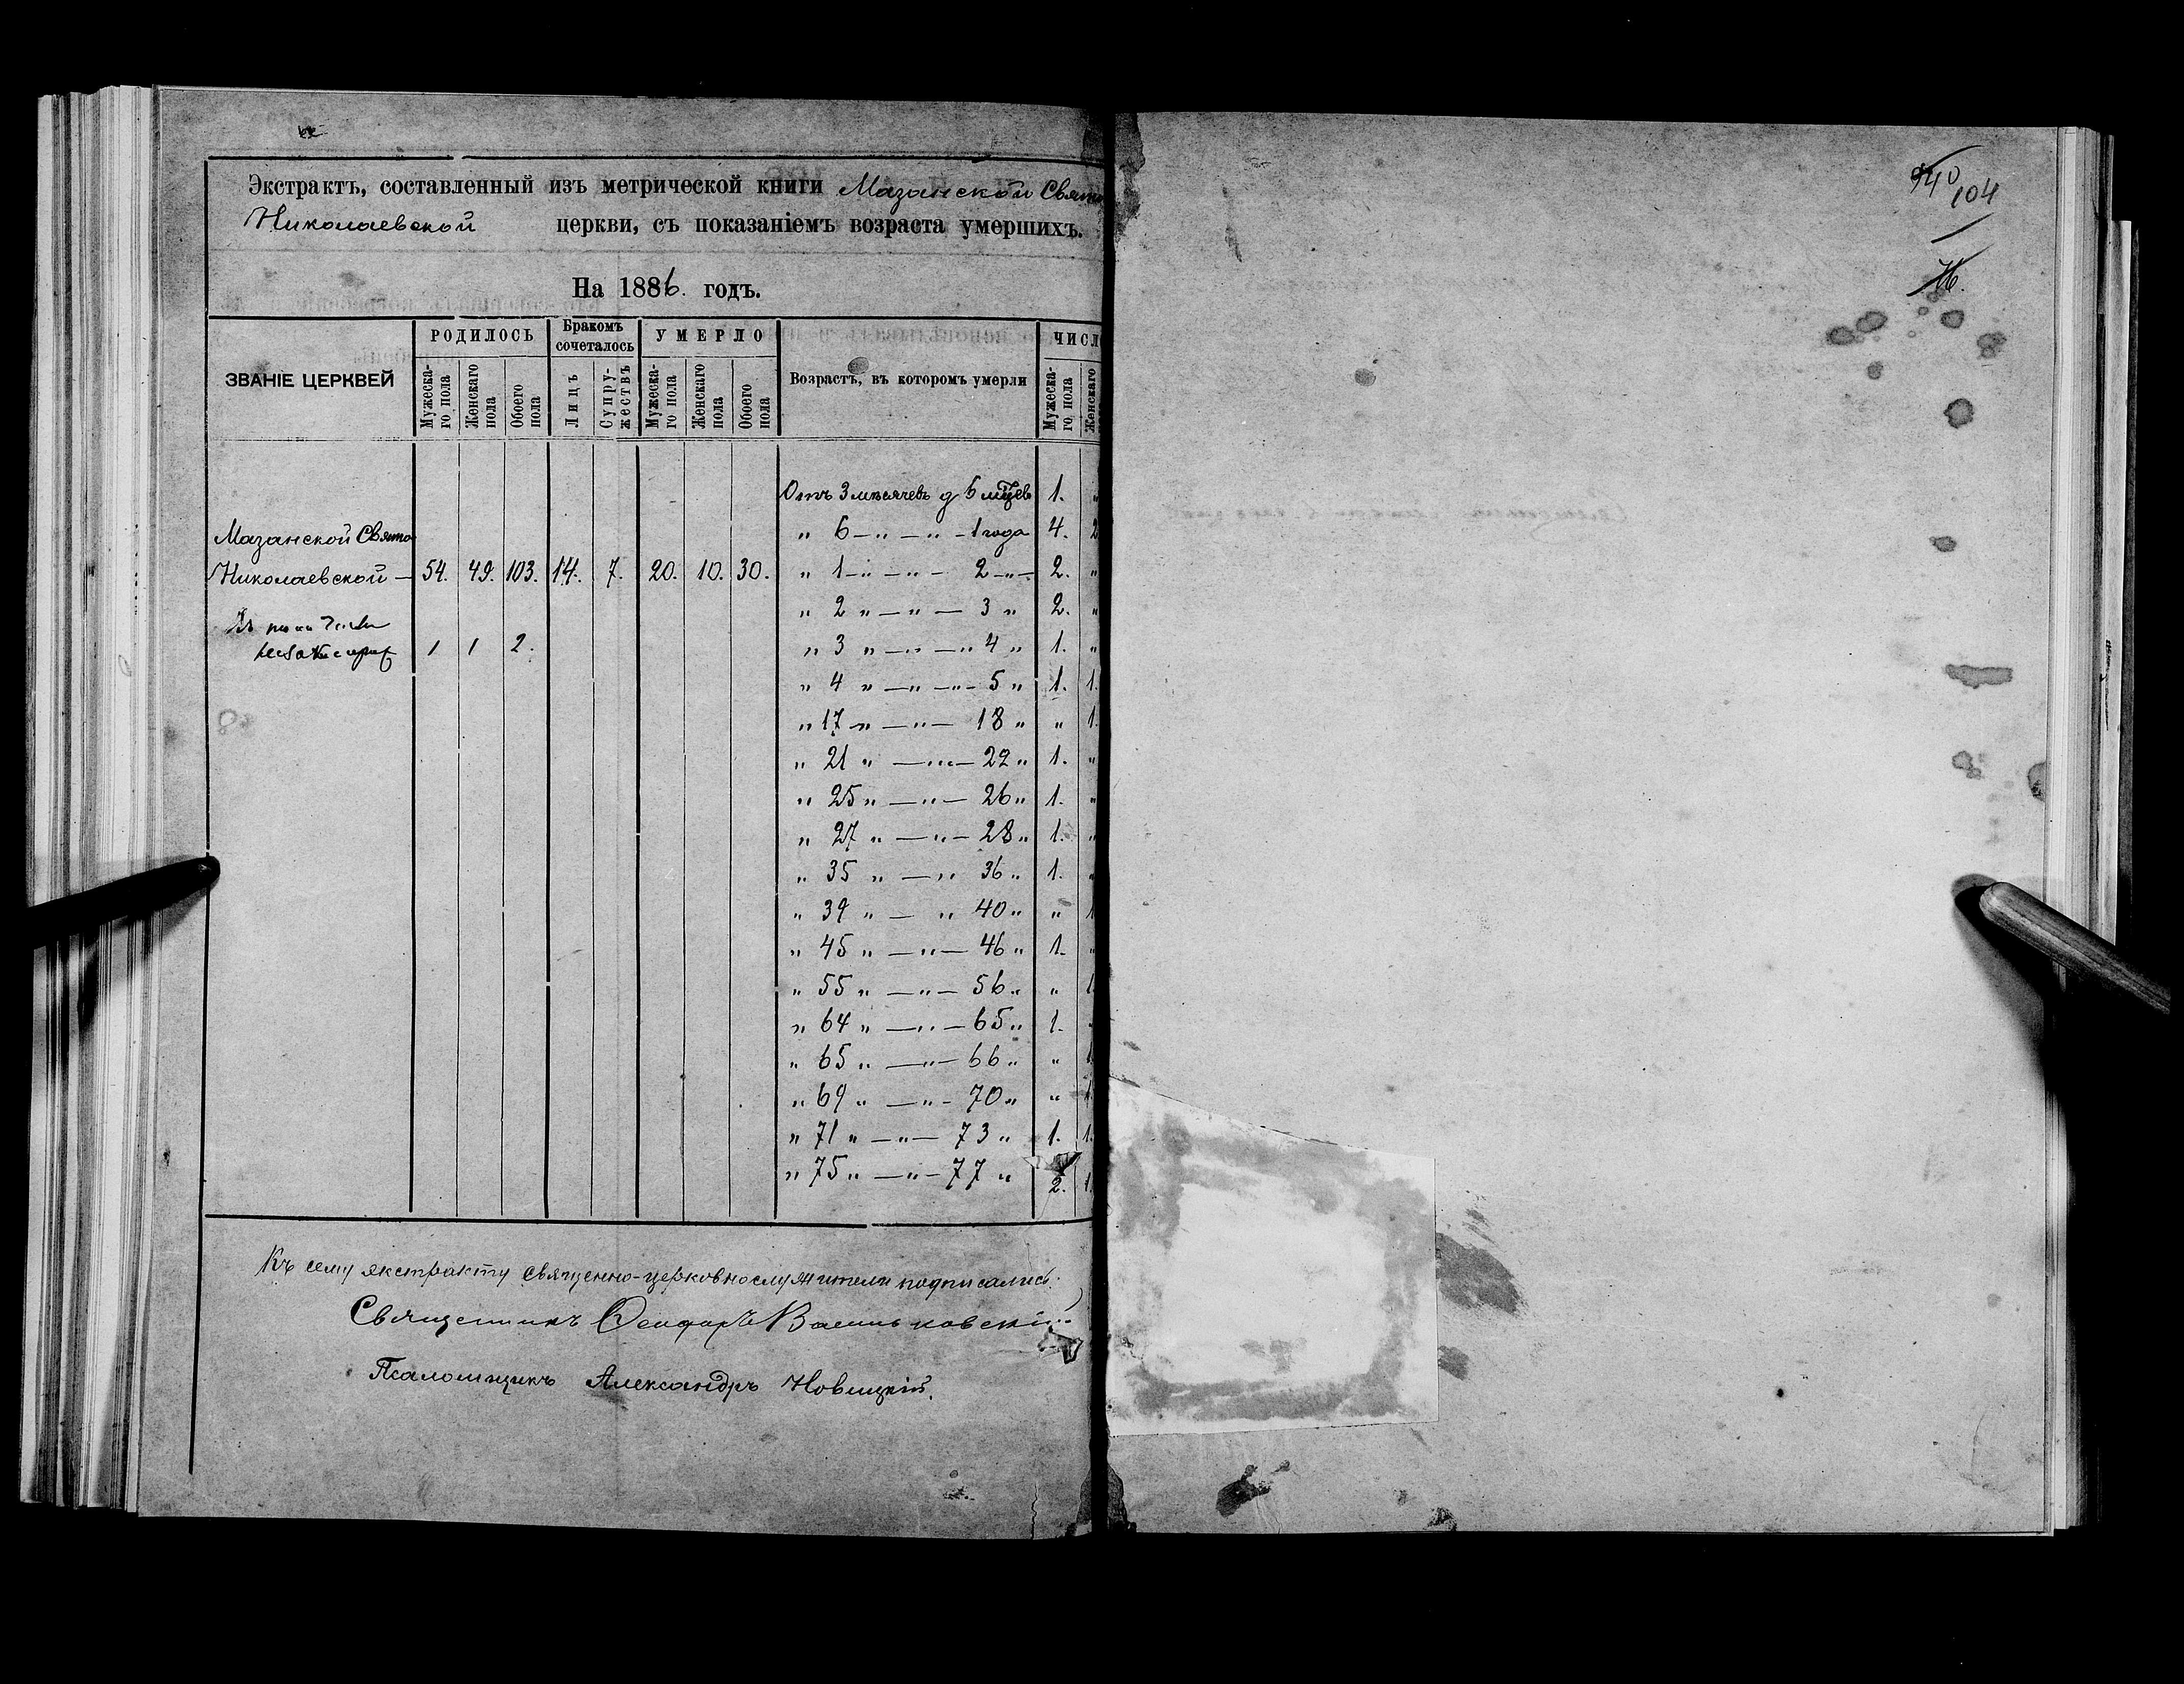 Экстрактъ, составленный изъ метрической книги Мазанской Свято
Николаевской церкви, съ показаніемъ возраста умершихъ.
На 1886. годъ.
ЗВАНІЕ ЦЕРКВЕЙ РОДИЛОСЬ Бракомъ сочеталось УМЕРЛО Возрастъ, въ которомъ умерли ЧИСЛ
Мужеска-го пола Женскаго пола Обоего пола Лицъ Супру-жествъ Мужеска-го пола Женскаго пола Обоего пола Мужеска-го пола Женскаго
Отъ 3 мѣсячевъ д 6 мцев 1. „
Мазанской Свято
„ 6 — „ — „ — 1 года 4. 2
Николаевской — 54. 49. 103. 14. 7. 20. 10. 30.
„ 1 — „ — „ — 2 — „ — 2. „
„ 2 „ — „ — 3 „ 2. „
1 1 2.
„ 3 „ — „ — „ 4 „ 1. „
„ 4 „ — „ — „ — 5 „ 1. 1.
„ 17 „ — „ — 18 „ „ 1.
„ 21 „ — „ „ — 22 „ 1. „
„ 25 „ — „ — 26 „ 1. „
„ 27 „ — „ — 28 „ 1. „
„ 35 „ — „ 36 „ 1. „
„ 39 „ — „ 40 „ „ 1
„ 45 „ — „ — 46 „ 1. „
„ 55 „ — „ — 56 „ „ 1
„ 64 „ — „ — 65 „ 1. „
„ 65 „ — „ — 66 „ „ 1
„ 69 „ — „ - 70 „ „ 1.
„ 71 „ — „ — 73 „ 1. 1.
„ 75 „ — „ — 77 „ 2. 1.
Къ сему экстракту священно-церковнослужители подписались:
Священникъ Ѳеодоръ Васильковскій
Псаломщикъ Александръ Новицкій.
940
104
76.